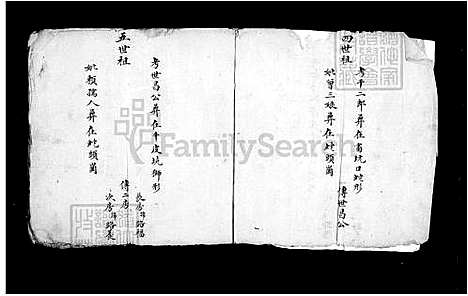 四世祖
考千二郎葬在富坑口蛇形
傳世昌公
妣曾三娘葬在蛇頭崗
五世祖
考世昌公葬在牛皮坑獅形
傳二房
長房諱路福
次房諱路義
妣賴孺人葬在蛇頭崗
FamilySearch